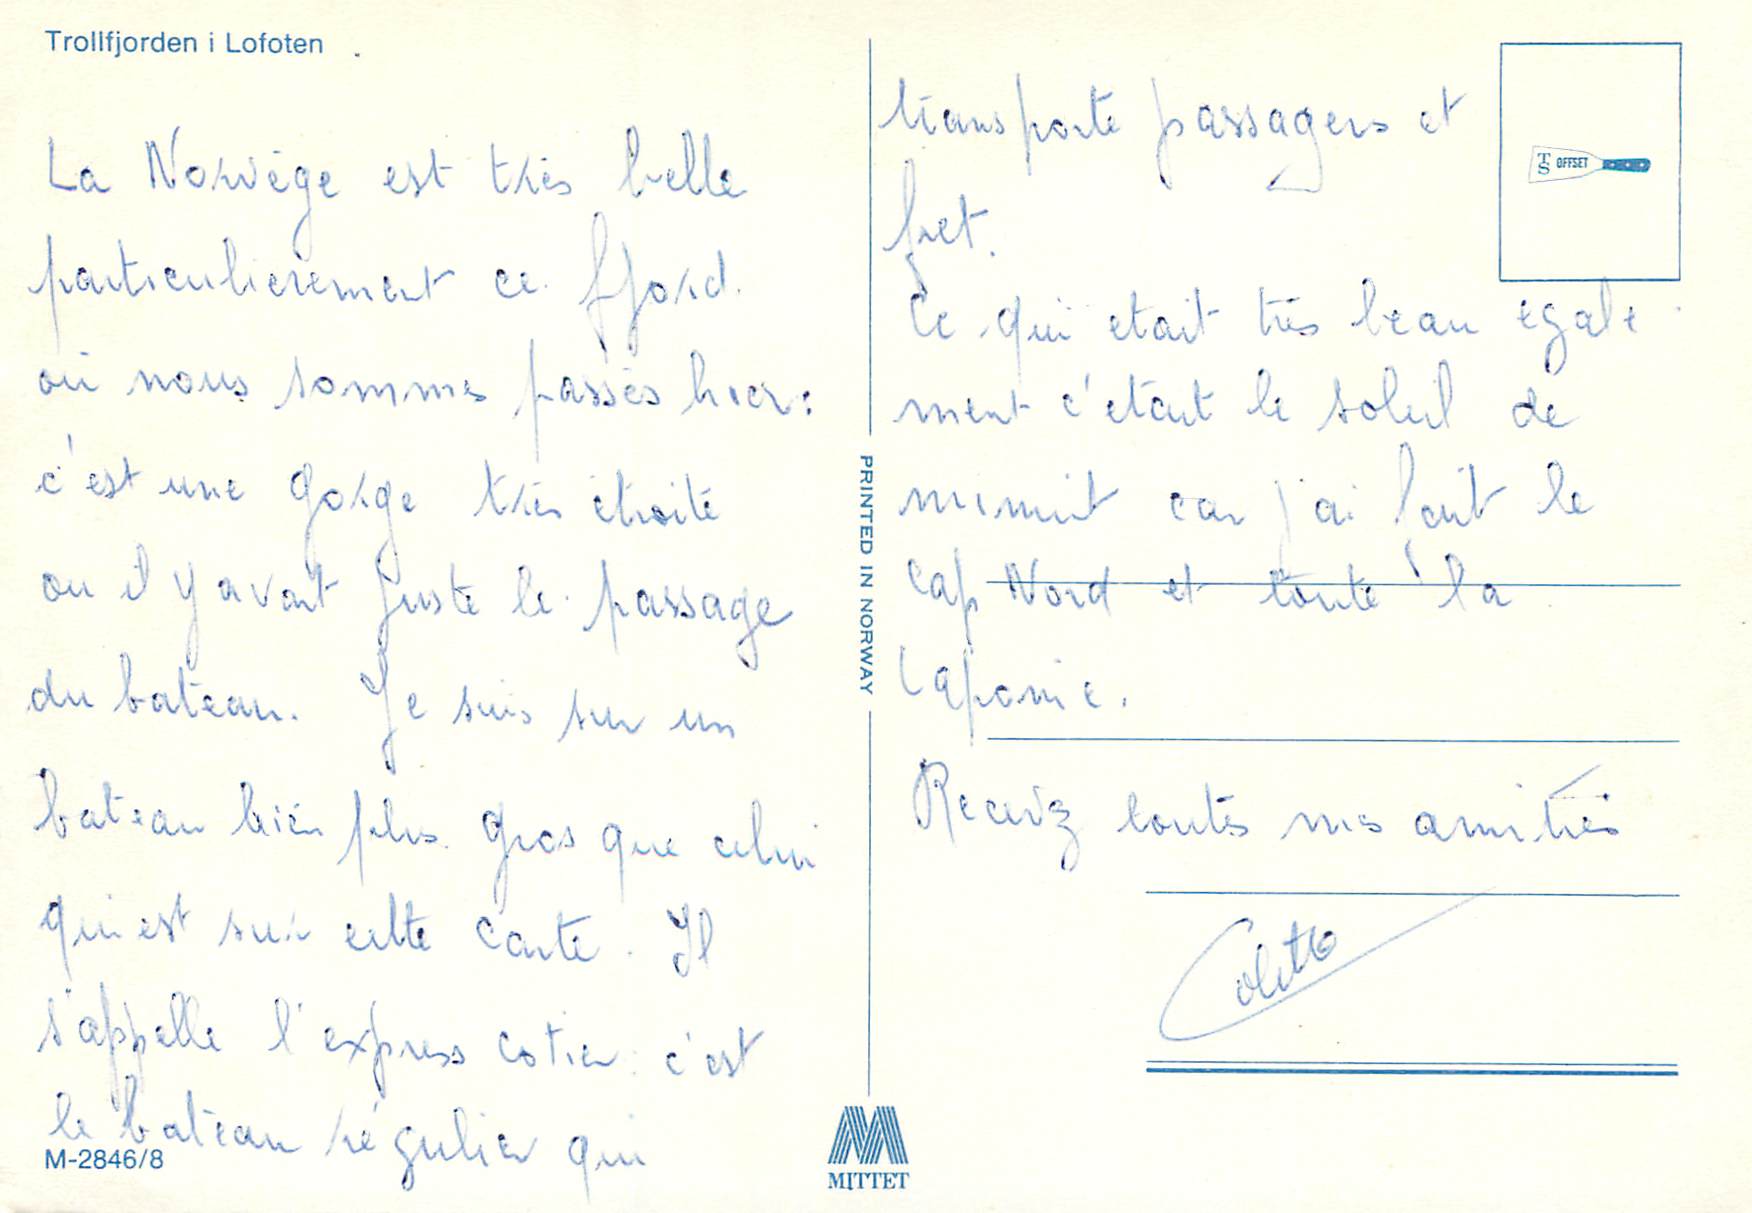 Trollfjorden i Lofoten
La Norvège est très belle
particulierement ce fjord
où nous sommes passés hier :
c'est une gorge très étroite
ou il y avait juste le passage
du bateau. Je suis sur un
bateau bien plus gros que celui
qui est sur cette carte. Il
s'appelle l'express cotier : c'est
le bateau régulier qui
M-2846/8
PRINTED IN NORWAY
MITTET
TS OFFSET
transporte passagers et
fret.
Ce qui etait très beau egale
ment c'etait le soleil de
minuit car j'ai fait le
cap Nord et toute la
Laponie.
Recevez toutes mes amitiés
Colette